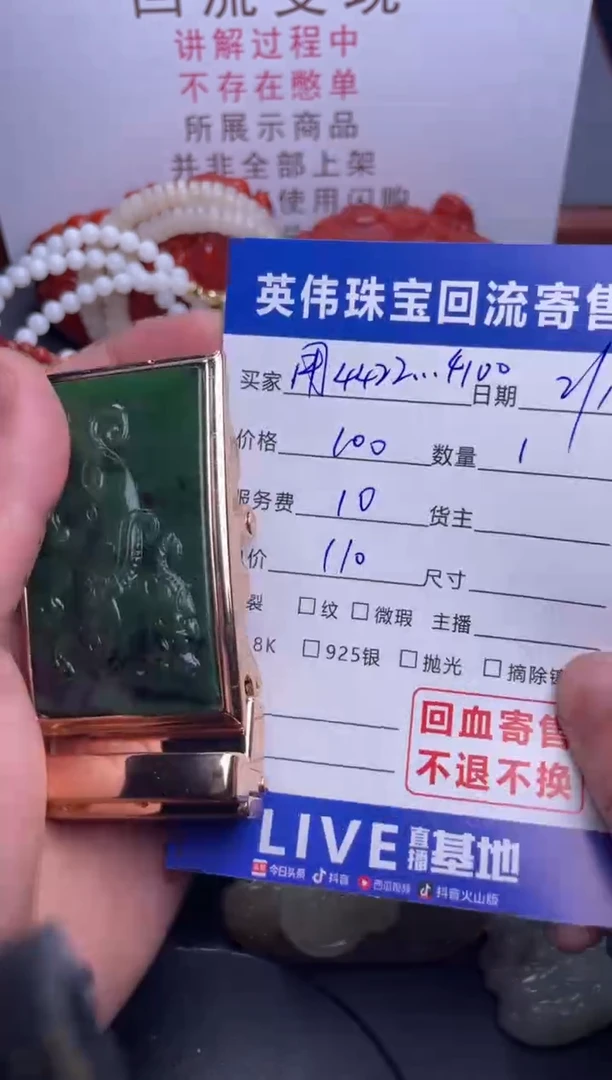 回流变现
讲解过程中
不存在憋单
所展示商品
并非全部上架
使用闪购
英伟珠宝回流寄售
买家 用4422...4100 日期 2/1
价格 100 数量 1
服务费 10 货主
价 110 尺寸
裂 □纹 □微瑕 主播
8K □925银 □抛光 □摘除镶
回血寄售
不退不换
LIVE 直播 基地
今日头条 抖音 西瓜视频 抖音火山版